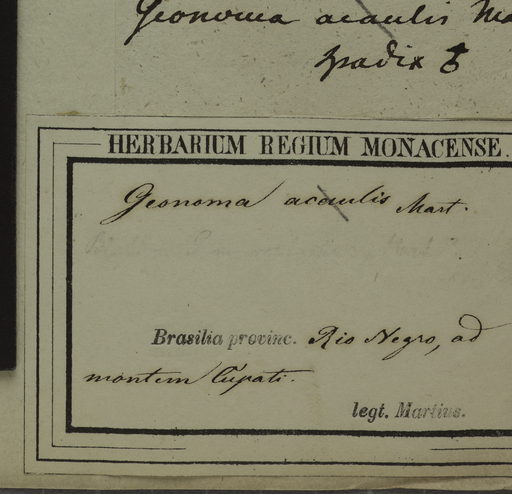 Geonoma acaulis
spadix ♂
HERBARIUM REGIUM MONACENSE.
Geonoma acaulis Mart.
Brasilia provinc. Rio Negro, ad
montem Cupati.
legt. Martius.